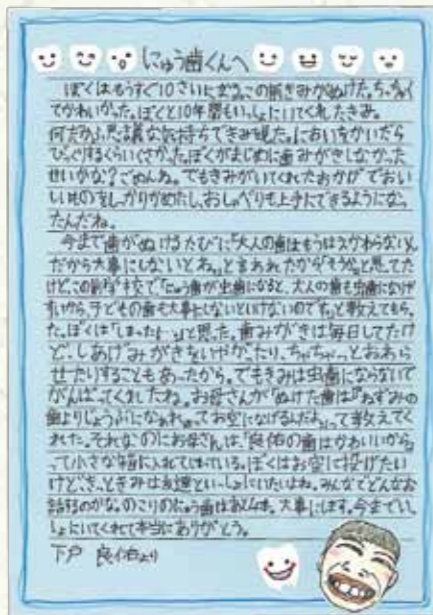 にゅう歯くんへ
ぼくはもうすぐ10さいになる。この前きみがぬけた。ちっちゃく
てかわいかった。ぼくと10年間もいっしょにいてくれたきみ。
何だかふ思議な気持ちできみを見た。においをかいだら
びっくりするくらいくさかった。ぼくがまじめに歯みがきしなかった
せいかな？ごめんね。でもきみがいてくれたおかげでおい
しいものをしっかりかめたし、おしゃべりも上手にできるようになっ
たんだね。
今まで歯がぬけるたびに「大人の歯はもうはえかわらない
だから大事にしないとね。」と言われたから「そうか」と思ってた
けど、この前学校で、「にゅう歯が虫歯になると、大人の歯も虫歯になりや
すいから、子どもの歯も大事にしないといけないのです。」と教えてもらっ
た。ぼくは「しまった…」と思った。歯みがきは毎日してたけ
ど、しあげみがきをいやがったり、ちゃちゃっとおわら
せたりすることもあったから。でもきみは虫歯にならないで
がんばってくれたね。お母さんが「ぬけた歯は『ねずみの
歯よりじょうぶになあれ。』ってお空になげるんだよ。」って教えてく
れた。それなのにお母さんは、「良佑の歯はかわいいから。」
って小さな箱に入れてしまっている。ぼくはお空に投げたい
けど、きっときみは友達といっしょにいたいよね。みんなでどんなお
話するのかな。のこりのにゅう歯は 大事にします。今までいっ
しょにいてくれて本当にありがとう。
下戸 良佑より